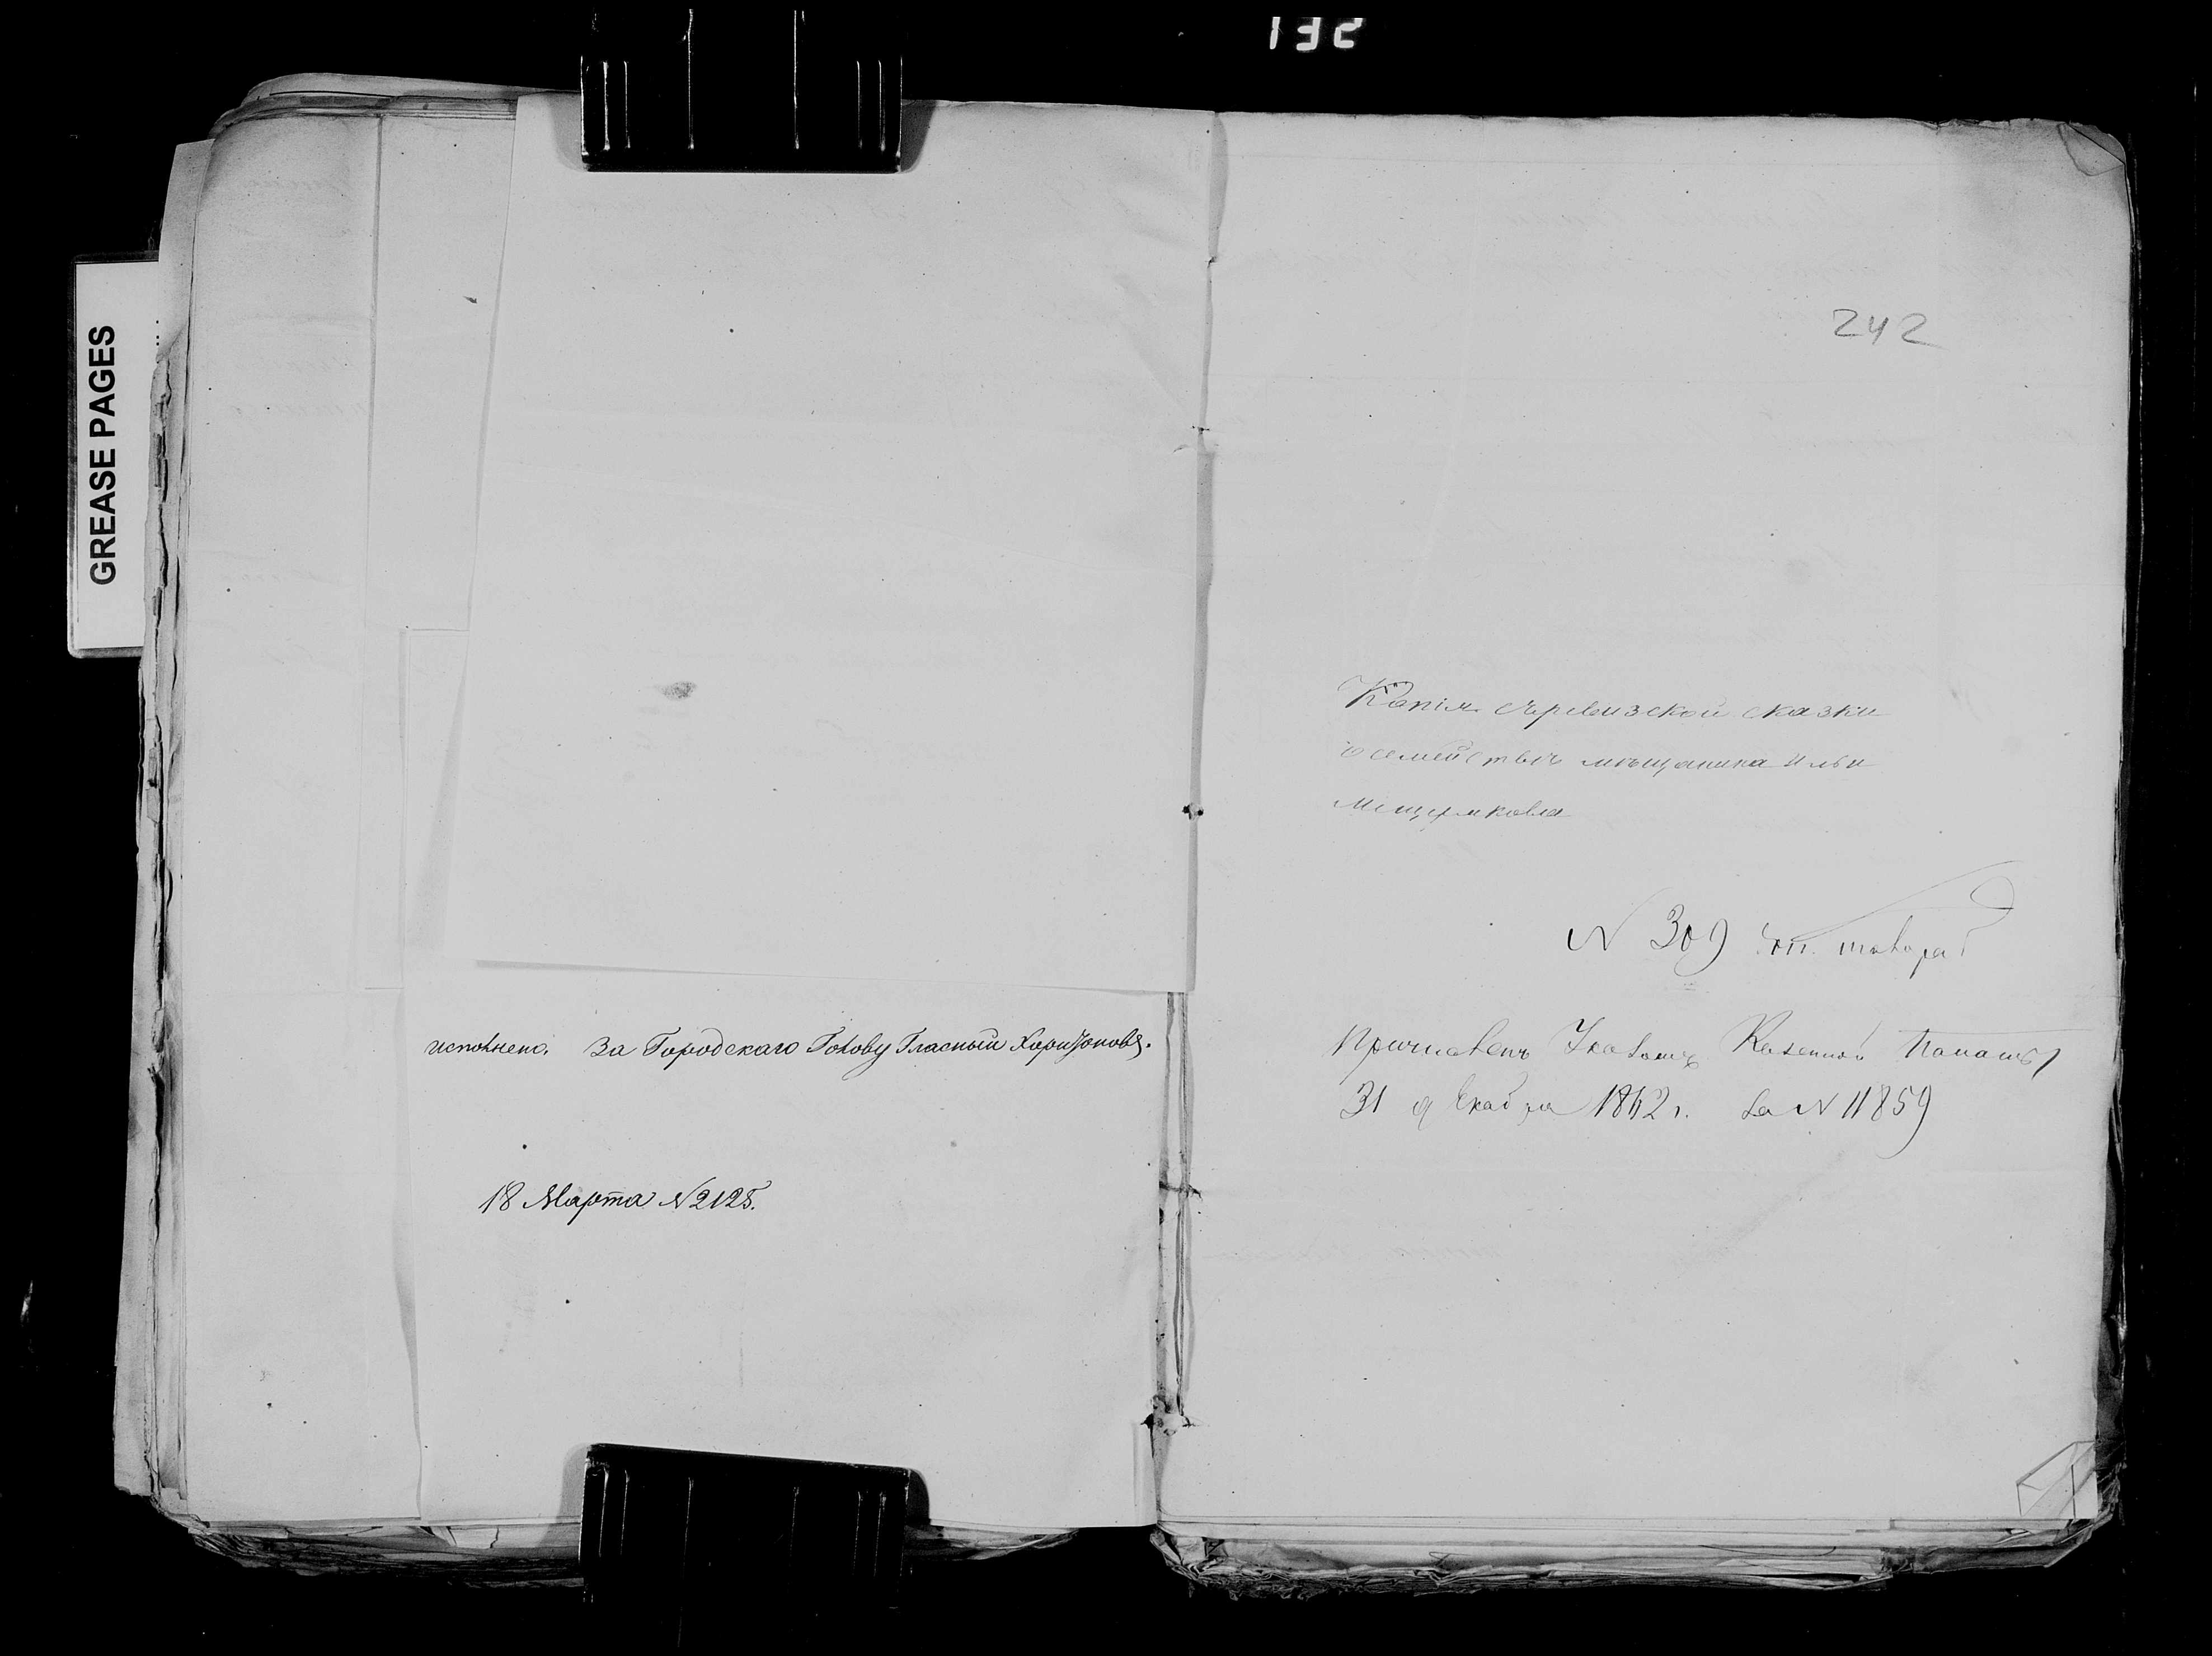 132
GREASE PAGES
исполнено. За Городскаго Голову Гласный Харитоновъ.
18 Марта №2125.
242
Копія съ ревизской сказки
о семействѣ мѣщанина Ильи
№ 309
Причисленъ Указомъ Казенной Палаты
31 декабря 1862 г. за № 11859